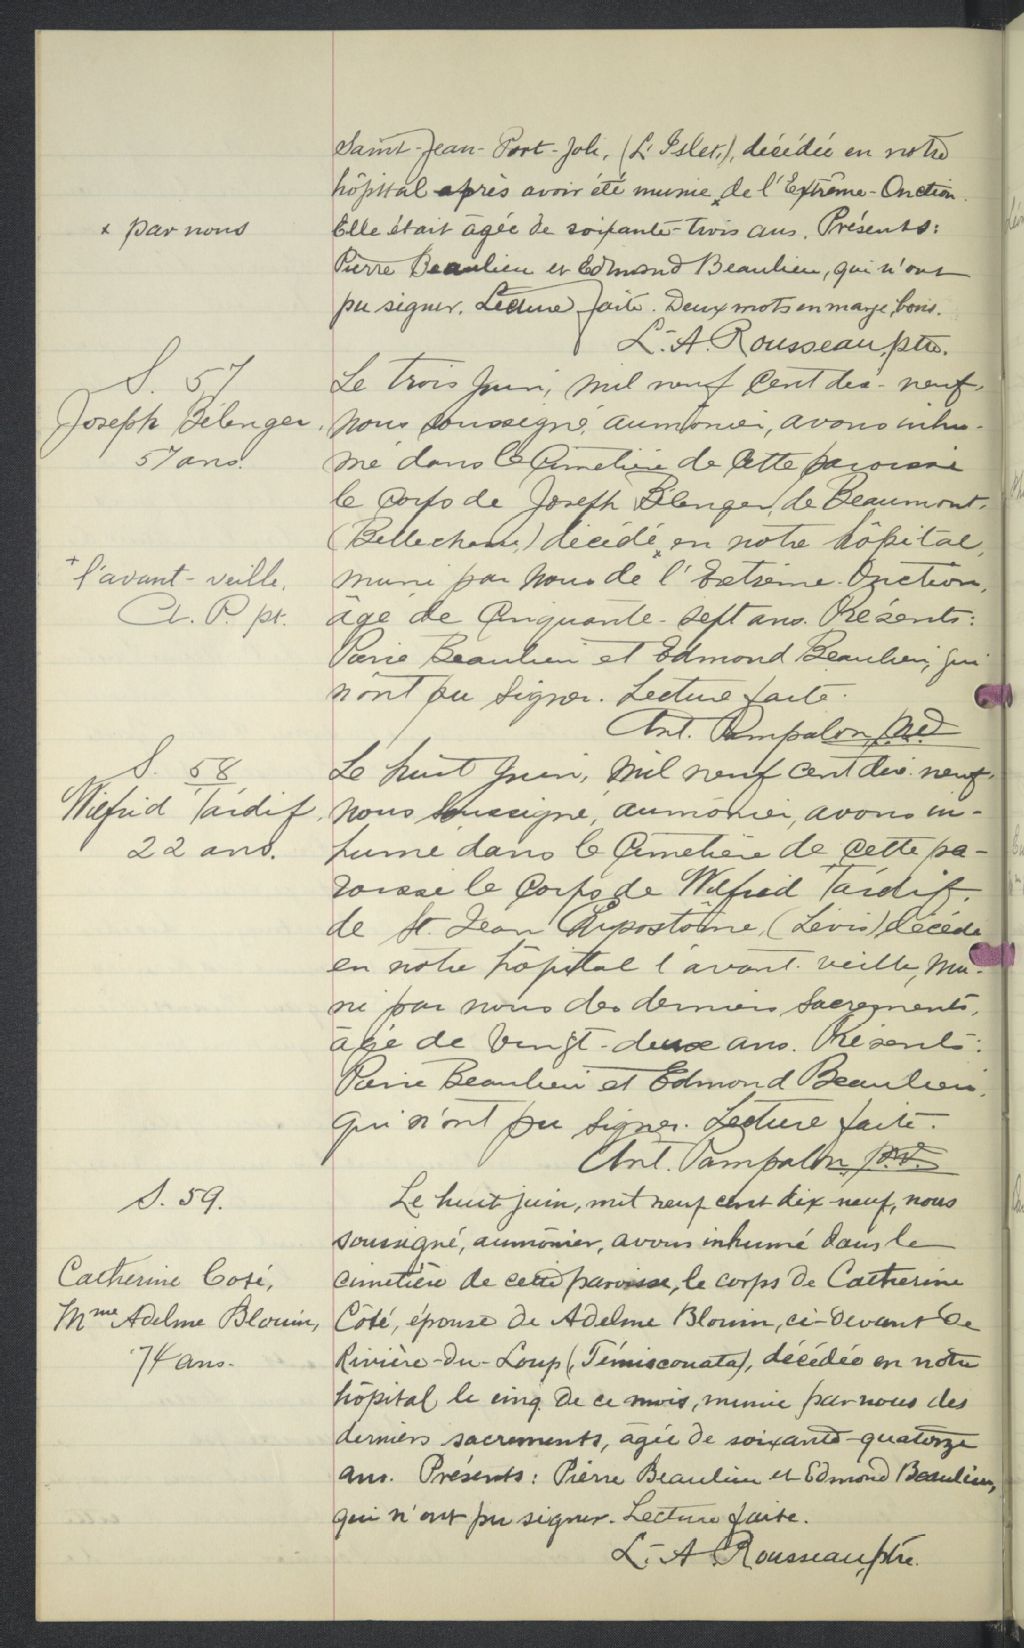 Saint-Jean-Port-Joli, (L'Islet,), décédée en notre
hôpital après avoir été munie x de l'Extrême-Onction.
x par nous
Elle était âgée de soixante-trois ans. Présents:
Pierre Beaulieu et Edmond Beaulieu, qui n'ont
pu signer. Lecture faite. Deux mots en marge, bons.
L.-A. Rousseau, ptre.
S. 57
Joseph Bélanger,
57 ans.
Le trois Juin, mil neuf cent dix-neuf,
nous soussigné, aumônier, avons inhu-
mé dans le Cimetière de cette paroisse
le corps de Joseph Bélanger, de Beaumont,
(Bellechasse,) décédé x en notre hôpital,
+ l'avant-veille.
A. P. pt.
muni par nous de l'Extrême-Onction,
âgé de cinquante-sept ans. Présents:
Pierre Beaulieu et Edmond Beaulieu, qui
n'ont pu signer. Lecture faite.
Ant. Pampalon, ptre
S. 58
Wilfrid Tardif,
22 ans.
Le huit Juin, mil neuf cent dix-neuf,
nous soussigné, aumônier, avons in-
humé dans le Cimetière de cette pa-
roisse le corps de Wilfrid Tardif,
de St. Jean Chrysostôme, (Lévis) décédé
en notre hôpital l'avant-veille, mu-
ni par nous des derniers sacrements,
âgé de vingt-deux ans. Présents:
Pierre Beaulieu et Edmond Beaulieu,
qui n'ont pu signer. Lecture faite.
Ant. Pampalon, ptre.
S. 59.
Catherine Coté,
Mme Adelme Blouin,
74 ans.
Le huit juin, mil neuf cent dix neuf, nous
soussigné, aumônier, avons inhumé dans le
cimetière de cette paroisse, le corps de Catherine
Côté, épouse de Adelme Blouin, ci-devant de
Rivière-du-Loup (Témiscouata), décédée en notre
hôpital le cinq de ce mois, munie par nous des
derniers sacrements, âgée de soixante-quatorze
ans. Présents: Pierre Beaulieu et Edmond Beaulieu,
qui n'ont pu signer. Lecture faite.
L.-A. Rousseau, ptre.